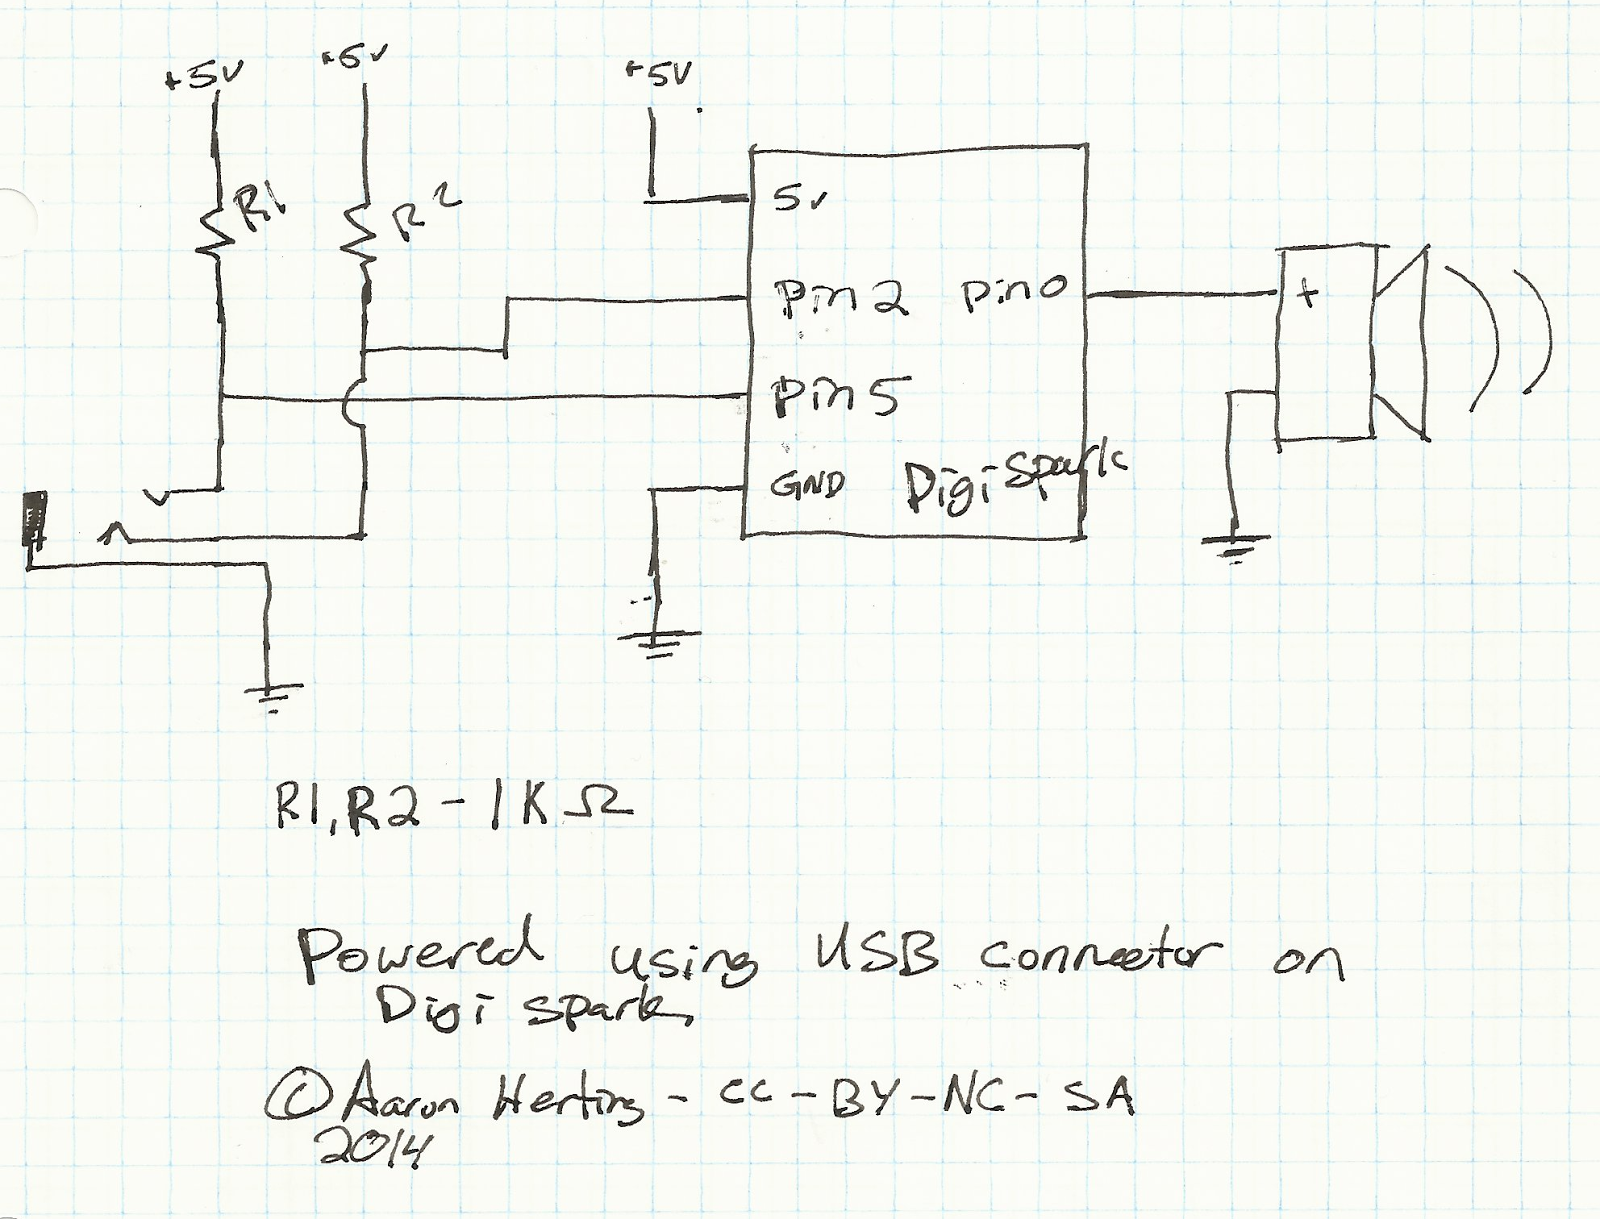 +5V
+5V
+5V
R1
R2
5v
Pin2
pin0
+
Pin5
GND
Digispark
R1, R2 - 1KΩ
Powered using USB connector on
Digispark
© Aaron Herting - CC-BY-NC-SA
2014